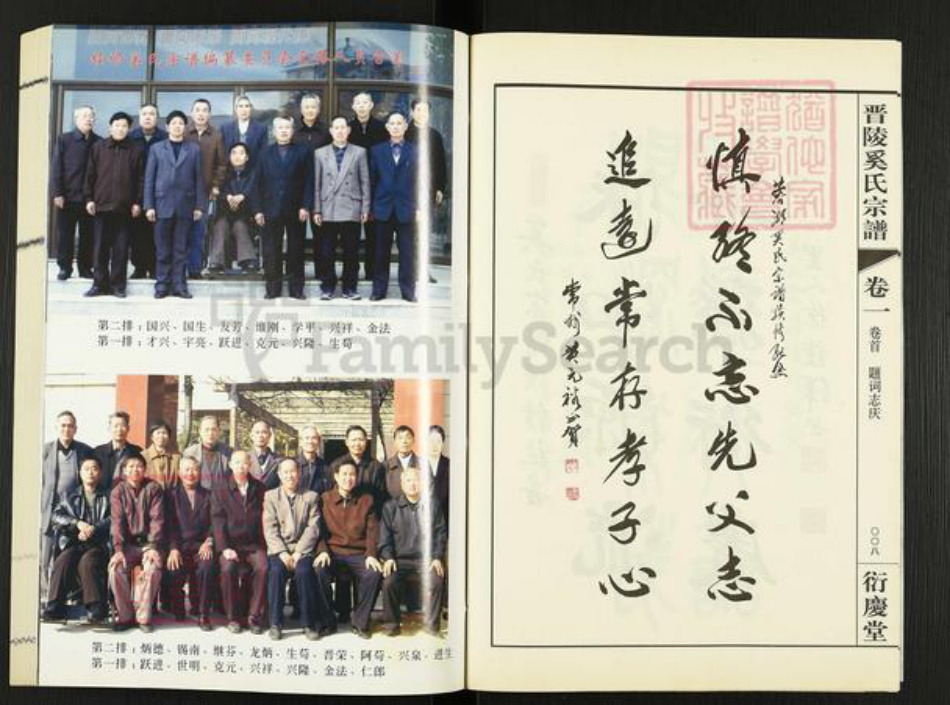 第二排：国兴、国生、友芳、维刚、学平、兴祥、金法
第一排：才兴、宇亮、跃进、克元、兴隆、生荀
第二排：炳德、锡南、继芬、龙炳、生荀、晋荣、阿荀、兴泉、进生
第一排：跃进、世明、克元、兴祥、兴隆、金法、仁郎
FamilySearch
晋陵奚氏宗譜
卷一
卷首 题词志庆
〇〇八
衍慶堂
慎终不忘先父志
追远常存孝子心